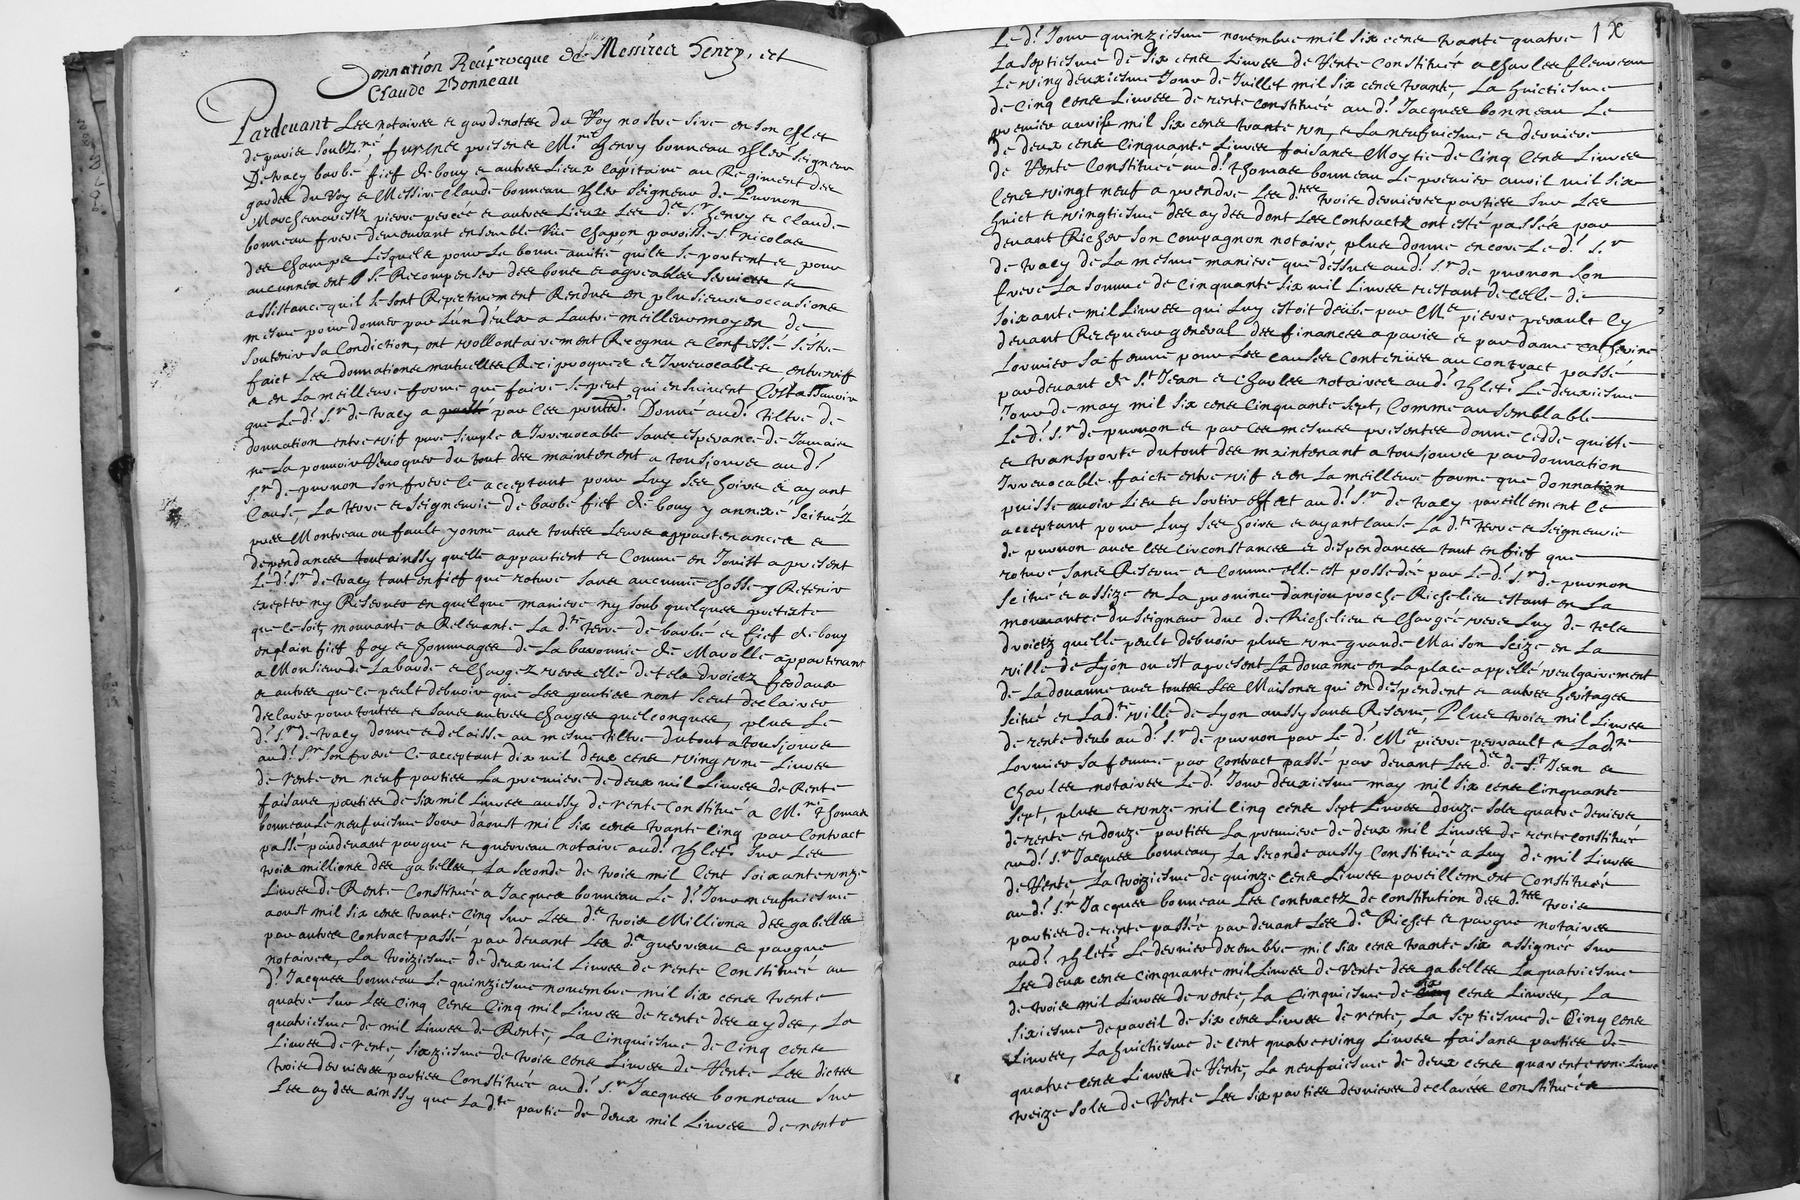 Donnation Reciprocque de Messires henry, et
Claude Bonneau
Pardevant Les notaires & gardenottes du Roy nostre sire en son Chlet
de paris soubz.nés, furent présens Mre henry bonneau chler seigneur
De tracy barbé fief de bouy & autres Lieux Capitaine au Regiment des
gardes du Roy & Messire Claude bonneau chler Seigneur de Purnon
pierre percée & autres Lieux Les ds. srs henry & Claude
bonneau freres demeurant ensemble rue chapon parroisse st nicolas
des champs Lesquels pour La bonne amitié quils se portent & pour
aucunnement se Recompenser des bons & agreables services &
assistance quil se sont Respectivement Rendus en plusieurs occasions
mesme pour donner par L'un d'eulx a Lautre meilleur moyen de
soutenir sa Condiction, ont vollontairement Recognu & Confessé s'estre
faict Les donnations mutuelles Reciproques & Irrevocables entre vifs
& en La meilleure forme que faire se peut qui ensuivent Cest assavoir
que Le d. sr de tracy a par ces pntes Donné aud. tiltre de
donnation entre vif pure simple & Irrevocable sans esperance de Jamais
ne La pouvoir Revoquer du tout des maintenent a tousjours au d.
sr de purnon son frere ce acceptant pour Luy ses hoirs & ayant
Cause, La terre & seigneurie de barbé fief de bouy y annexe scituéz
pres Montreau ou fault yonne avec touttes Leurs appartenances &
dependances toutainssy quelle appartient & Comme en Jouist a present
Le d. sr de tracy tant en fief que roture sans aucunne chosse y Retenir
excepter ny Reserver en quelque maniere ny soub quelque pretexte
que ce soit, mouvante & Relevante La d.te terre de barbé & fief de bouy
en plain fief foy & hommages de La baronnie de Marolle appartenant
a Monsieur de Labarde & Chargéz vers elle de tels droictz feodaux
& autres qu'ce peult debvoir que Les parties nont sceut declairer
declarer pour touttes & sans autres charges quelconques, plus Le
d. sr de tracy donne & delaisse au mesme tiltre du tout a tousjours
aud. sr son frere ce acceptant dix mil deux cens vingt une Livres
de rente en neuf parties La premiere de deux mil Livres de Rente
faisans parties de six mil Livres aussy de rente Constitué a Mre thomas
bonneau Le neufviesme Jour d'aoust mil six cens trante cinq par Contract
passé pardevant parque & guerreau notaire aud. chlet. sur Les
trois millions des gabelles, La seconde de trois mil Cent soixante unze
Livres de Rente Constituée a Jacques bonneau Le d. Jour neufviesme
aoust mil six cens trante cinq sur Les ds. trois Millions des gabelles
par autres contract passé par devant Les ds. guerreau & parque
notaires, La troiziesme de deux mil Livres de rente Constituée au
d. Jacques bonneau Le quinziesme novembre mil six cens trente
quatre sur Les Cinq Cens Cinq mil Livres de rente des aydes, La
quatriesme de mil Livres de Rente, La Cinquiesme de Cinq cens
Livres de rente, sixziesme de trois cens Livres de Rente Les dictes
trois dernieres parties Constitués au d. sr Jacques bonneau sur
Les aydes ainssy que La d.te partie de deux mil Livres de rente
1X
Le d. Jour quinziesme novembre mil six cens trante quatre
La septiesme de six cens Livres de Rente Constituée a Charles fleureau
Le vingdeuxiesme Jour de Juillet mil six cens trante, La huictiesme
de Cinq cens Livres de rente constituée au d. Jacques bonneau Le
premier mil six cens trante un, & La neufviesme & derniere
de deux cens Cinquante Livres faisans Moytie de Cinq Cens Livres
de Rente Constituée au d. thomas bonneau Le premier avril mil six
cens vingt neuf a prendre Les d.tes trois dernieres parties sur Les
huict & vingtiesme des aydes dont Les contractz ont esté passés par
devant Richer son Compagnon notaire, plus donne encore Le d. sr
de tracy de La mesme maniere que dessus aud. sr de purnon son
frere La somme de Cinquante six mil Livres restant de celle de
soixante mil Livres qui Luy estoit deube par Me pierre perault Cy
devant Recepveur general des finances a paris & par dame catherine
Lormier sa femme pour Les causes Contenues au contract passé
pardevant de st Jean & Charles notaires aud. chlet. Le deuxiesme
Jour de may mil six cens Cinquante sept, Comme au semblable
Le d. sr de purnon & par ces mesmes presentes donne cedde quitte
& transporte dutout des maintenant a tousjours par donnation
Irrevocable faicte entre vif & en La meilleure forme que donnation
puisse avoir Lieu & sortir effect au d. sr de tracy pareillement ce
acceptant pour Luy ses hoirs & ayant cause La d.te terre & seigneurie
de purnon avec ses circonstances & dependances tant en fief que
roture sans Reserve & Comme elle est possedée par Le d. sr de purnon
scitue & assize en La province danjou proche Richelieu estant en La
mouvance du seigneur duc de Richelieu & Chargée vers Luy de tels
droictz quelle peult debvoir plus une grande Maison seize en La
ville de Lyon ou est apresent La douanne en La place appellé vulgairement
de La douanne avec touttes Les Maisons qui en despendent & autres heritages
scitué en Lad.te ville de Lyon aussy sans Reserve, Plus trois mil Livres
de rente deub au d. sr de purnon par Le d. Me pierre perrault & La d.te
Lormier sa femme par contract passé par devant Les ds. de st Jean &
Charles notaires Le d. Jour deuxiesme may mil six cens Cinquante
sept, plus unze mil Cinq cens sept Livres douze sols quatre deniers
de rente en douze parties La premiere de deux mil Livres de rente constitué
au d. sr Jacques bonneau, La seconde aussy Constituée a Luy de mil Livres
de Rente, La troiziesme de quinze cens Livres pareillement Constituée
au d. sr Jacques bonneau Les contractz de constitution des d.tes trois
parties de rente passés par devant Les ds. Richer & parque notaires
aud. chlet. Le dernier decembre mil six cens trante six assignée sur
Les deux cens cinquante mil Livres de Rente des gabelles La quatriesme
de trois mil Livres de rente, La Cinquiesme de six cens Livres, La
sixiesme de pareil de six cens Livres de rente, La septiesme de Cinq cens
Livres, La huictiesme de cent quatreving Livres faisans parties de
quatre cens Livres de Rente, La neufviesme de deux cens quarente une Livres
treize sols de Rente Les six parties dernieres declarées constituées